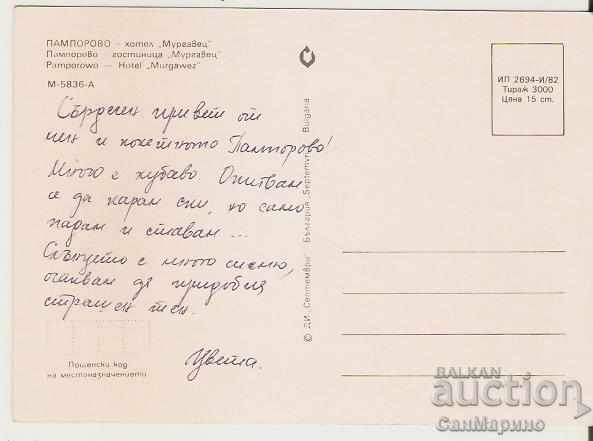 ПАМПОРОВО – хотел „Мургавец"
Пампорово – гостиница „Мургавец"
Pamporowo — Hotel „Murgawez"
М-5836-А
Сърдечен привет от
мен и кокетното Пампорово!
Много е хубаво. Опитвам
се да карам ски, но само
падам и ставам ...
Слънцето е много силно,
очаквам да придобия
страшен тен.
Цвета.
Пощенски код
на местоназначението
© ДИ „Септември" България „Septemvri" Bulgaria
ИП 2694-И/82
Тираж 3000
Цена 15 ст.
BALKAN
auction
СанМарино